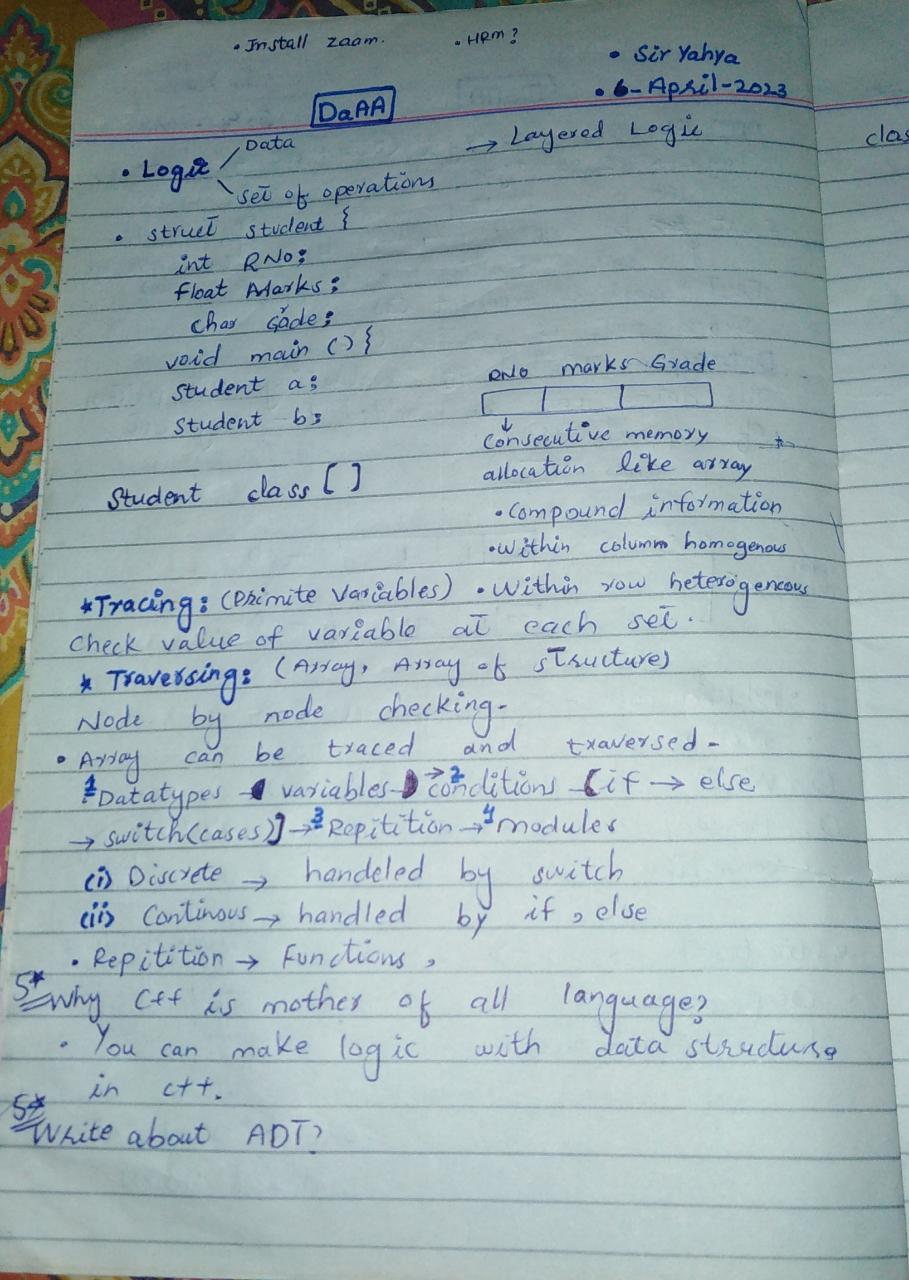 • Install zaam. • HRM?
• Sir Yahya
• 6-April-2023
DaAA
Data
→ Layered Logic
clas
• Logic
set of operations
• struct student {
int RNo;
float Marks;
char Gade;
void main () {
student a;
student b;
RNo marks Grade
Consecutive memory
allocation like array
Student class []
• Compound information
• within column homogenous
*Tracing: (Primite Variables) • Within row heterogeneous
Check value of variable at each set.
* Traversing: (Array, Array of structure)
Node by node checking-
• Array can be traced and traversed-
1 Datatypes variables → 2 conditions (if → else
→ switch(cases)] → 3 Repitition → 4 modules
(i) Discrete → handeled by switch
(ii) Continous → handled by if, else
• Repitition → Functions,
5* Why C++ is mother of all language?
• You can make logic with data structure
in C++.
5* Write about ADT?